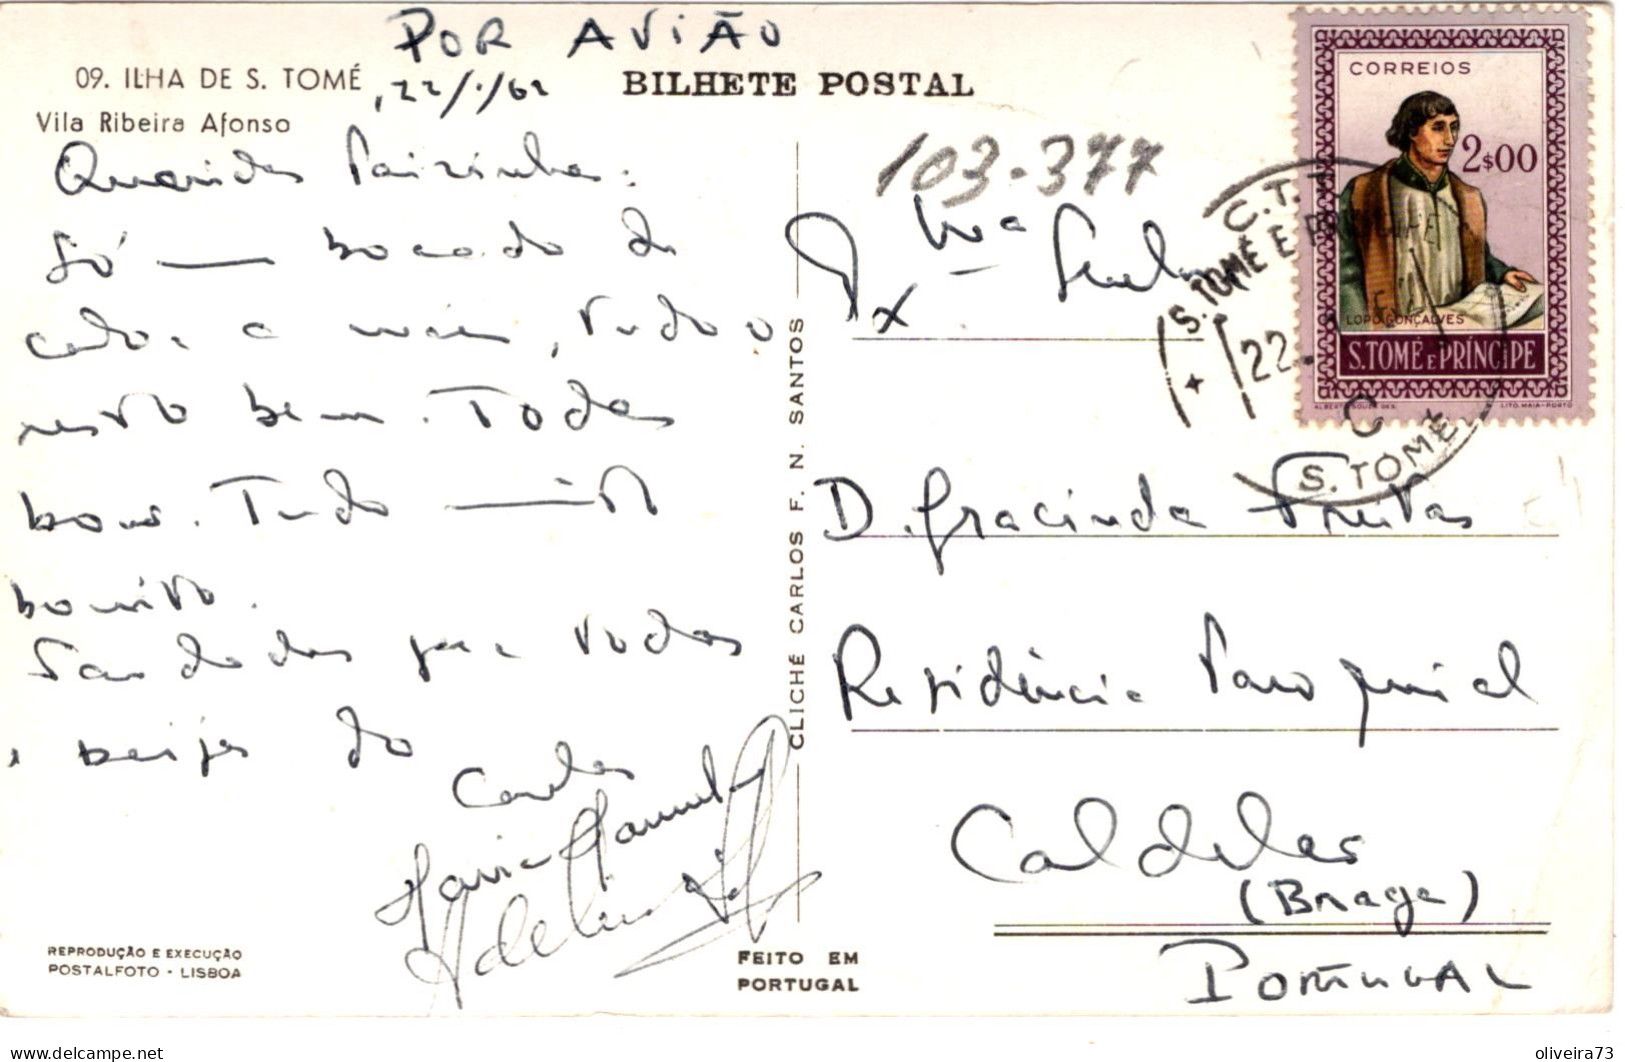 POR AVIÃO
09. ILHA DE S. TOMÉ
22/1/62
BILHETE POSTAL
Vila Ribeira Afonso
103-377
Queridas Paizinhas:
Só — bocado de
calor a mais, tudo o
resto bem. Todos
bons. Tudo muito
bonito.
Saudades para todos
e beijos do
Carlos
Maria Manuela
Adelina
Exma Senhora
D. Gracinda Freitas
Residência Paroquial
Caldelas
(Braga)
PORTUGAL
CORREIOS
2$00
LOPO GONÇALVES
S. TOMÉ E PRÍNCIPE
LITO. MAIA-PORTO
C.T.T.
S. TOMÉ E PRÍNCIPE
22
C
S. TOMÉ
CLICHÉ CARLOS F. N. SANTOS
REPRODUÇÃO E EXECUÇÃO
POSTALFOTO - LISBOA
FEITO EM
PORTUGAL
delcampe.net
oliveira73